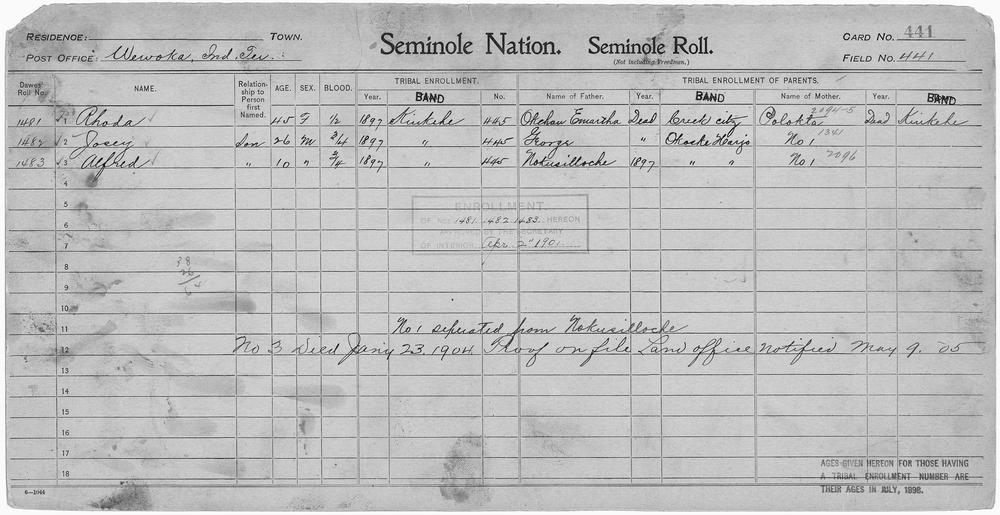 RESIDENCE: TOWN. Seminole Nation. Seminole Roll. CARD NO. 441
POST OFFICE: Wewoka, Ind. Ter. (Not including Freedmen.) FIELD NO. 441
Dawes Roll No. NAME. Relationship to Person first Named. AGE. SEX. BLOOD. TRIBAL ENROLLMENT. TRIBAL ENROLLMENT OF PARENTS.
Year. BAND No. Name of Father. Year. BAND Name of Mother. Year. BAND
1481 1 Rhoda 45 F 1/2 1897 Kinkehe 445 Okchan Emartha Dead Creek city Polokta 2094-5 Dead Kinkehe
1482 2 Josey Son 26 M 3/4 1897 " 445 George " Okoske Harjo No 1 1341
1483 3 Alfred " 10 " 3/4 1897 " 445 Nokusilloche 1897 " " No 1 2096
4
5
ENROLLMENT
6 OF NOS 1481. 1482. 1483. HEREON
APPROVED BY THE SECRETARY
7 OF INTERIOR Apr. 2" 1901
8 38
9 26/
10
11 No 1 seperated from Nokusilloche
12 No 3 Died Jan'y 23, 1904. Proof on file Land office notified May 9. 05
13
14
15
16
17
AGES GIVEN HEREON FOR THOSE HAVING
18 A TRIBAL ENROLLMENT NUMBER ARE
6-1044 THEIR AGES IN JULY, 1898.